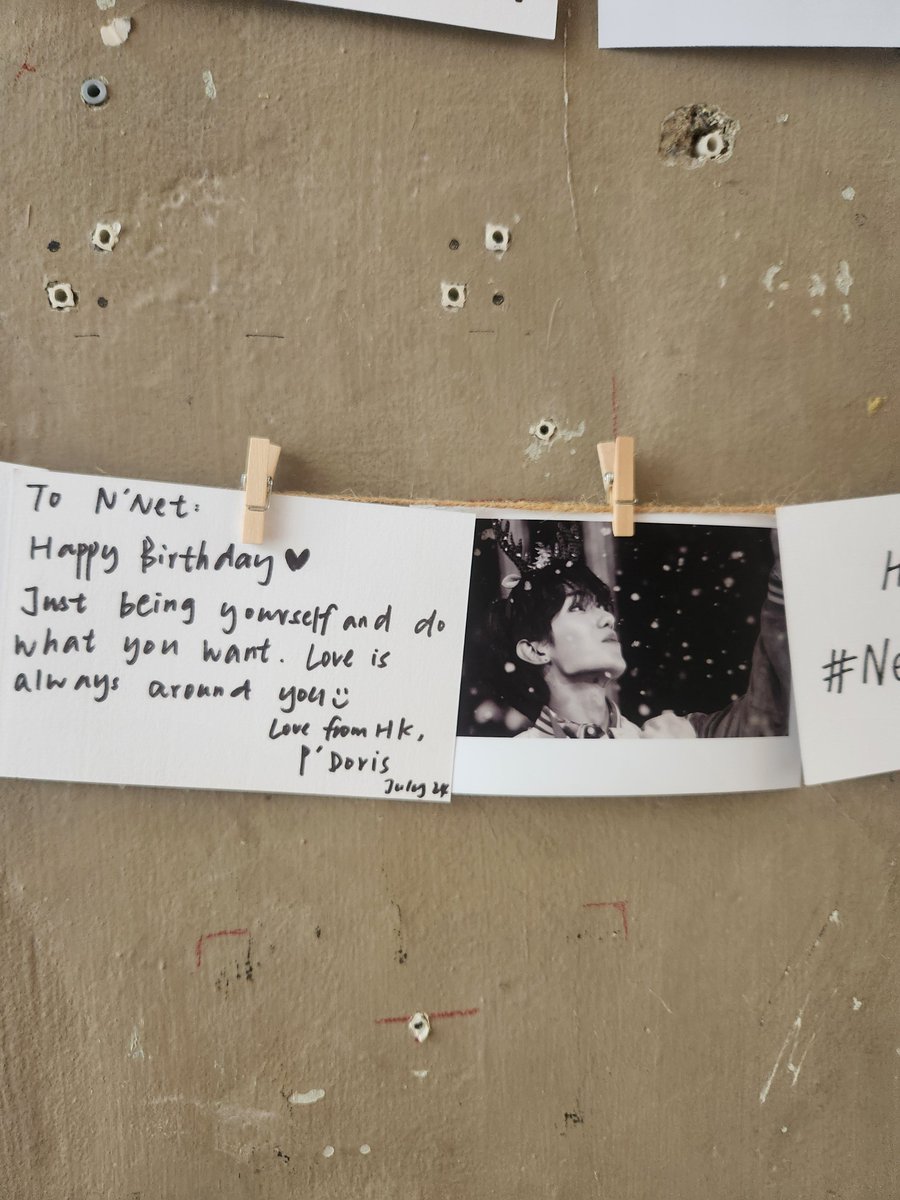 To N'Net:
Happy Birthday ♥
Just being yourself and do
what you want. Love is
always around you☺
Love from HK,
P'Doris
July 24
H
#Ne